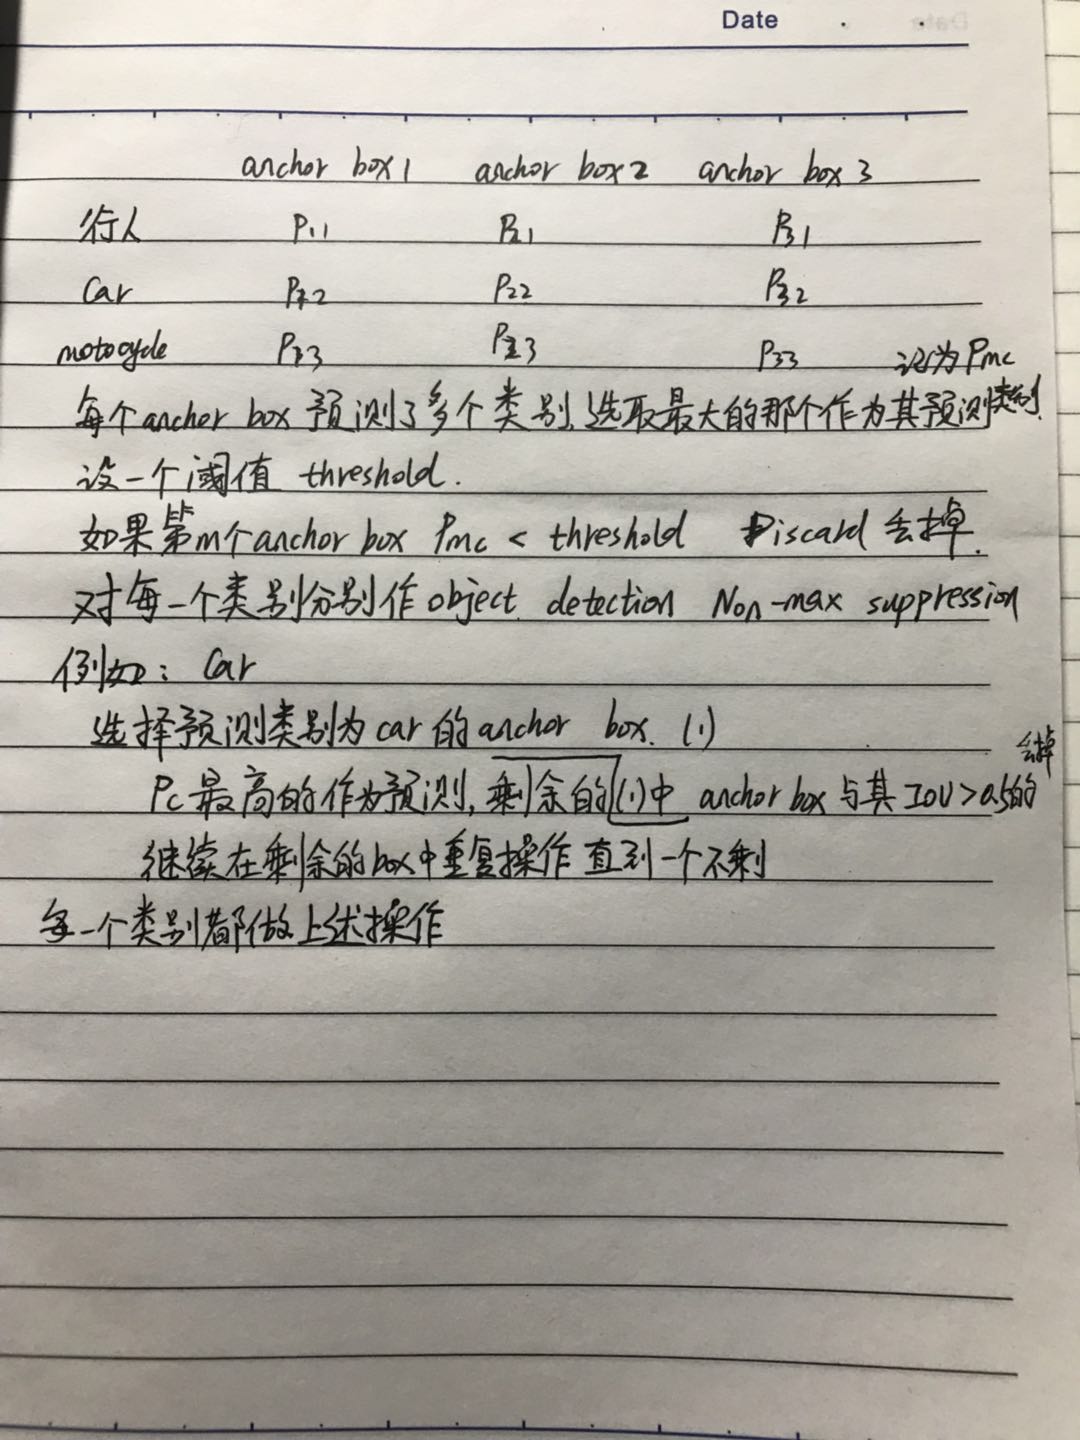 Date
anchor box 1 anchor box 2 anchor box 3
行人 P11 P21 P31
Car P12 P22 P32
motocycle P13 P23 P33 记为 Pmc
每个anchor box 预测了多个类别,选取最大的那个作为其预测类别.
设一个阈值 threshold.
如果第m个anchor box Pmc < threshold Discard 丢掉.
对每一个类别分别作 object detection Non-max suppression
例如: Car
选择预测类别为 car 的 anchor box. (1)
Pc 最高的作为预测, 剩余的(1)中 anchor box 与其 IOU>0.5的 丢掉
继续在剩余的box中重复操作 直到一个不剩
每一个类别都做上述操作